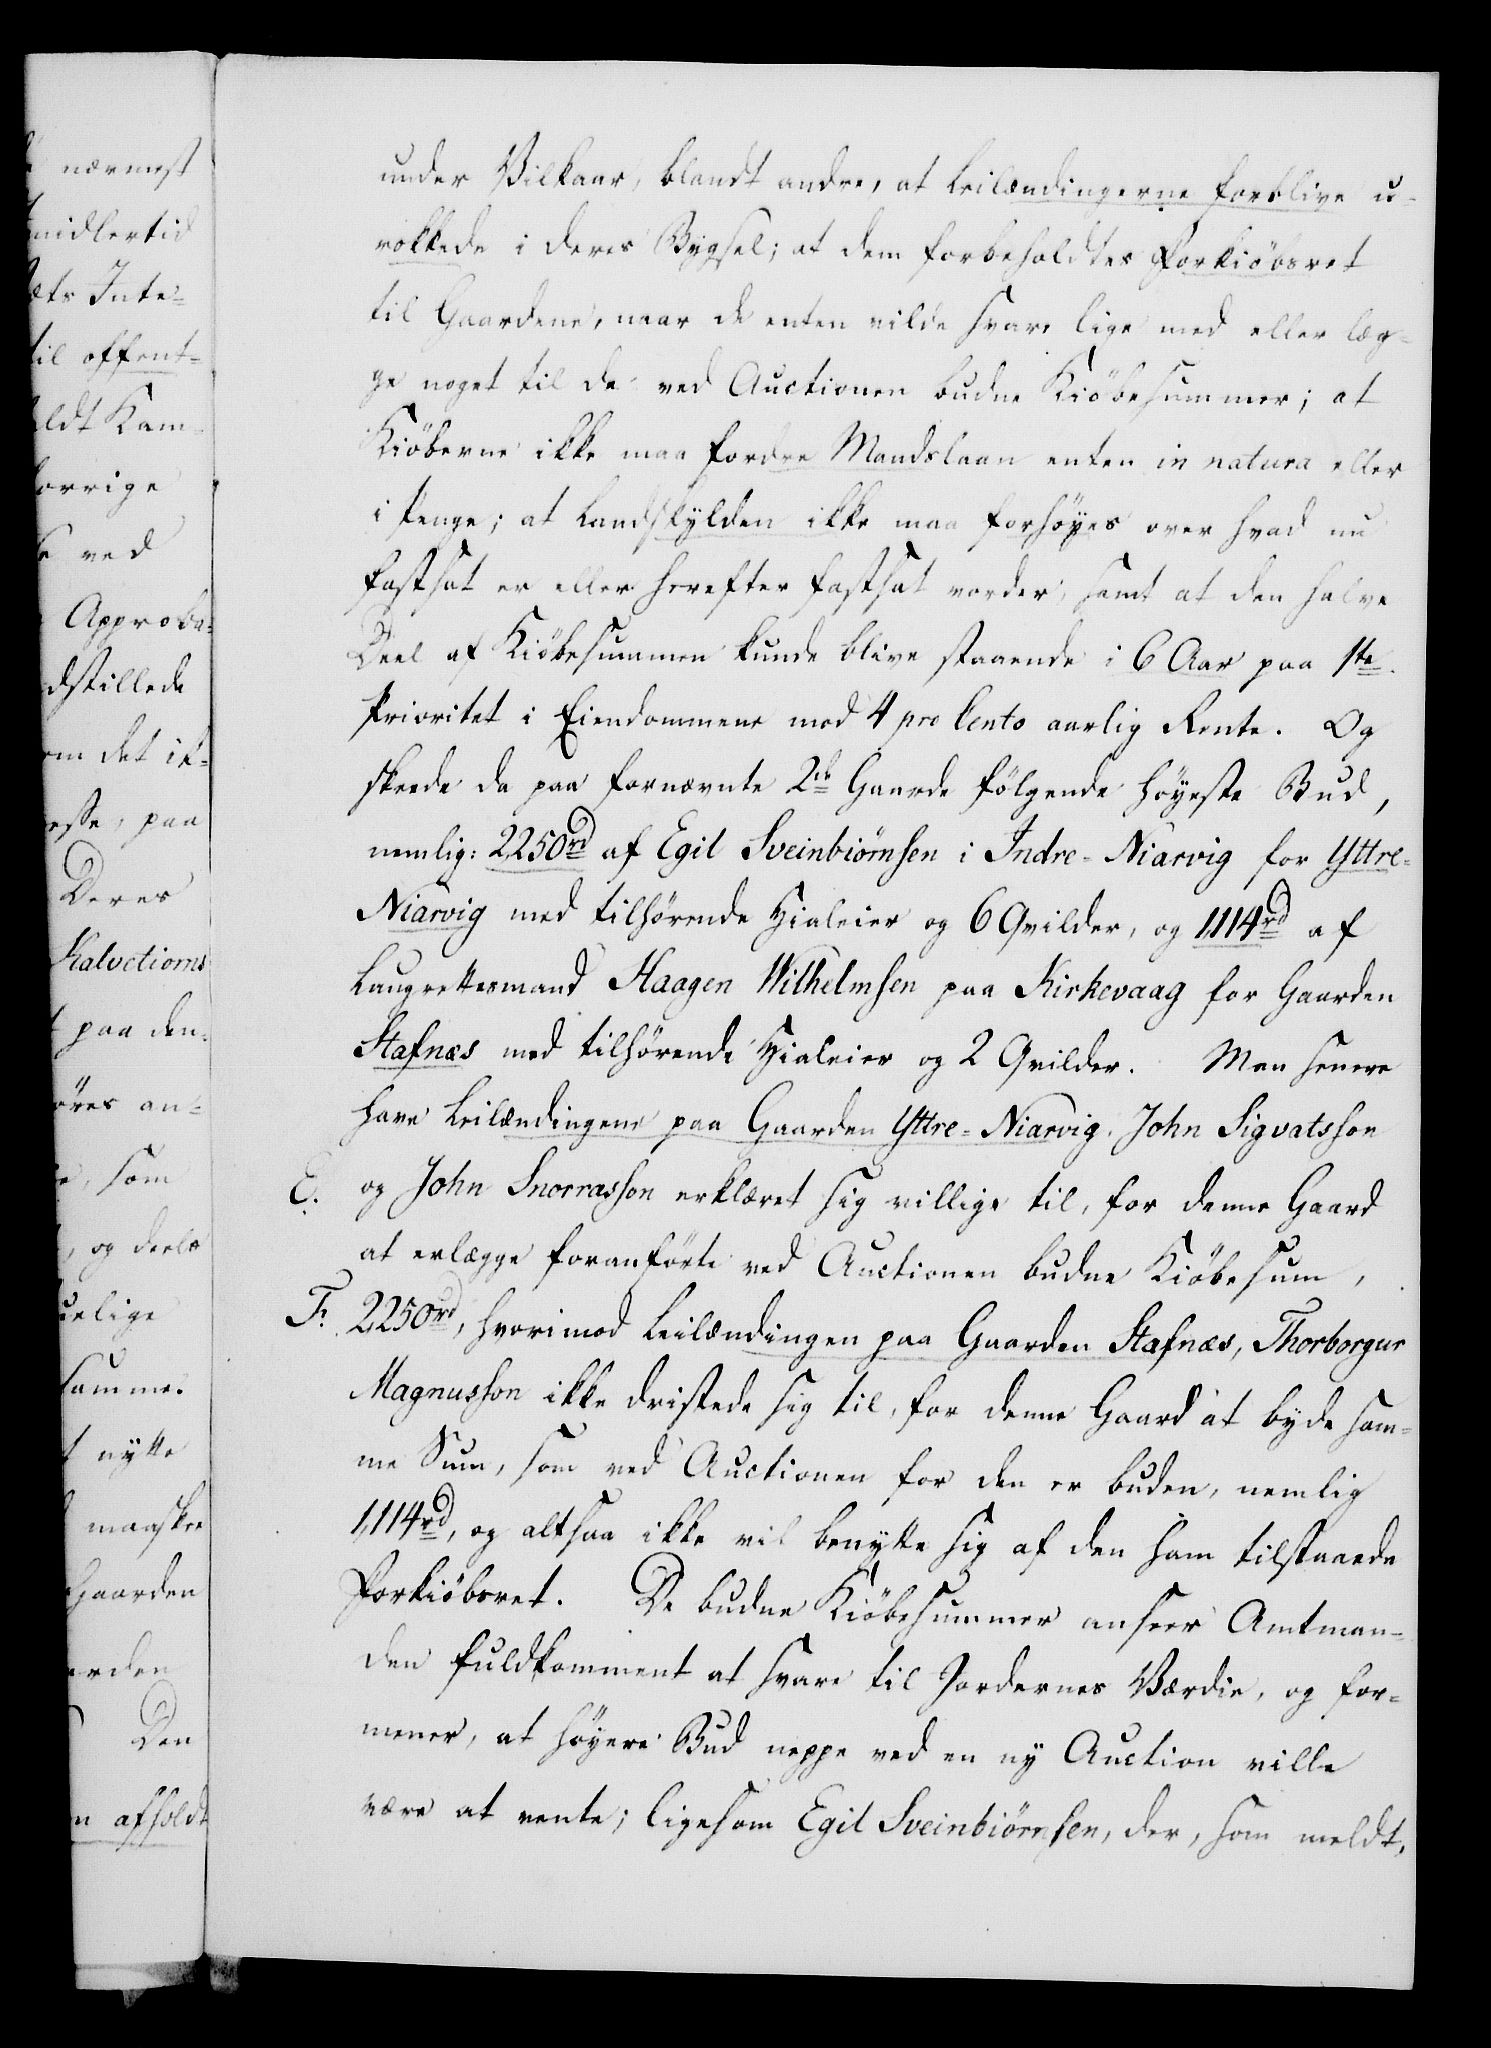 nærmest
midlertid
æts Inte-
til offent-
ldt Kam-
orrige
ved
Approba-
dstillede
om det ik-
esse, paa
Deres
Kalvetiorns
paa den-
öres an-
som
, og deels
uelige
samme.
nytte
maaskee
Gaarden
arden
Den
n afholdt
under Vilkaar, blandt andre, at Leilændingerne forblive u-
rokkede i deres Bygsel; at dem forbeholdtes Forkiöbsret
til Gaardene, naar de enten vilde svare lige med eller læg-
ge noget til de ved Auctionen budne Kiöbesummer; at
Kiöberne ikke maa fordre Mandslaan enten in natura eller
i Penge; at Landskylden ikke maa forhöyes over hvad nu
fastsat er eller herefter fastsat vorder, samt at den halve
Deel af Kiöbesummen kunde blive staaende i 6 Aar paa 1te
Prioritet i Eiendommene mod 4 pro Cento aarlig Rente. Og
skeede da paa fornævnte 2de Gaarde fölgende höyeste Bud,
nemlig: 2,250rd af Egil Sveinbiörnsen i Indre-Niarvig for Yttre-
Niarvig med tilhörende Hialeier og 6 Qvilder, og 1,114rd af
Laugrettesmand Haagen Wilhelmsen paa Kirkevaag for Gaarden
Stafnæs med tilhörende Hialeier og 2 Qvilder. Men senere
have Leilændingene paa Gaarden Yttre-Niarvig, John Sigvatsson
E. og John Snorrasson erklæret sig villige til, for denne Gaard
at erlægge foranförte ved Auctionen budne Kiöbesum,
F. 2,250rd, hvorimod Leilændingen paa Gaarden Stafnæs, Thorborgur
Magnusson ikke dristede sig til, for denne Gaard at byde sam-
me Sum, som ved Auctionen for den er buden, nemlig
1,114rd, og altsaa ikke vil benytte sig af den ham tilstaaede
Forkiöbsret. De budne Kiöbesummer anseer Amtman-
den fuldkomment at svare til Jordernes Værdie, og for-
mener, at höyere Bud neppe ved en ny Auction ville
være at vente; ligesom Egil Sveinbiörnsen, der, som meldt,